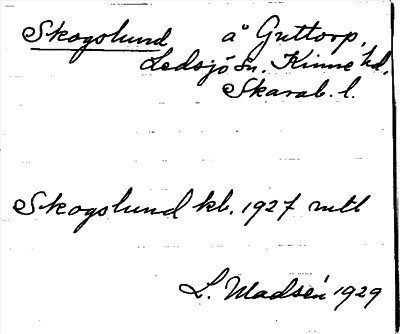 Skogslund å Guttorp,
Ledsjö sn. Kinne hd.
Skarab. l.
Skogslund kb. 1927 mtl
L. Madsén 1929